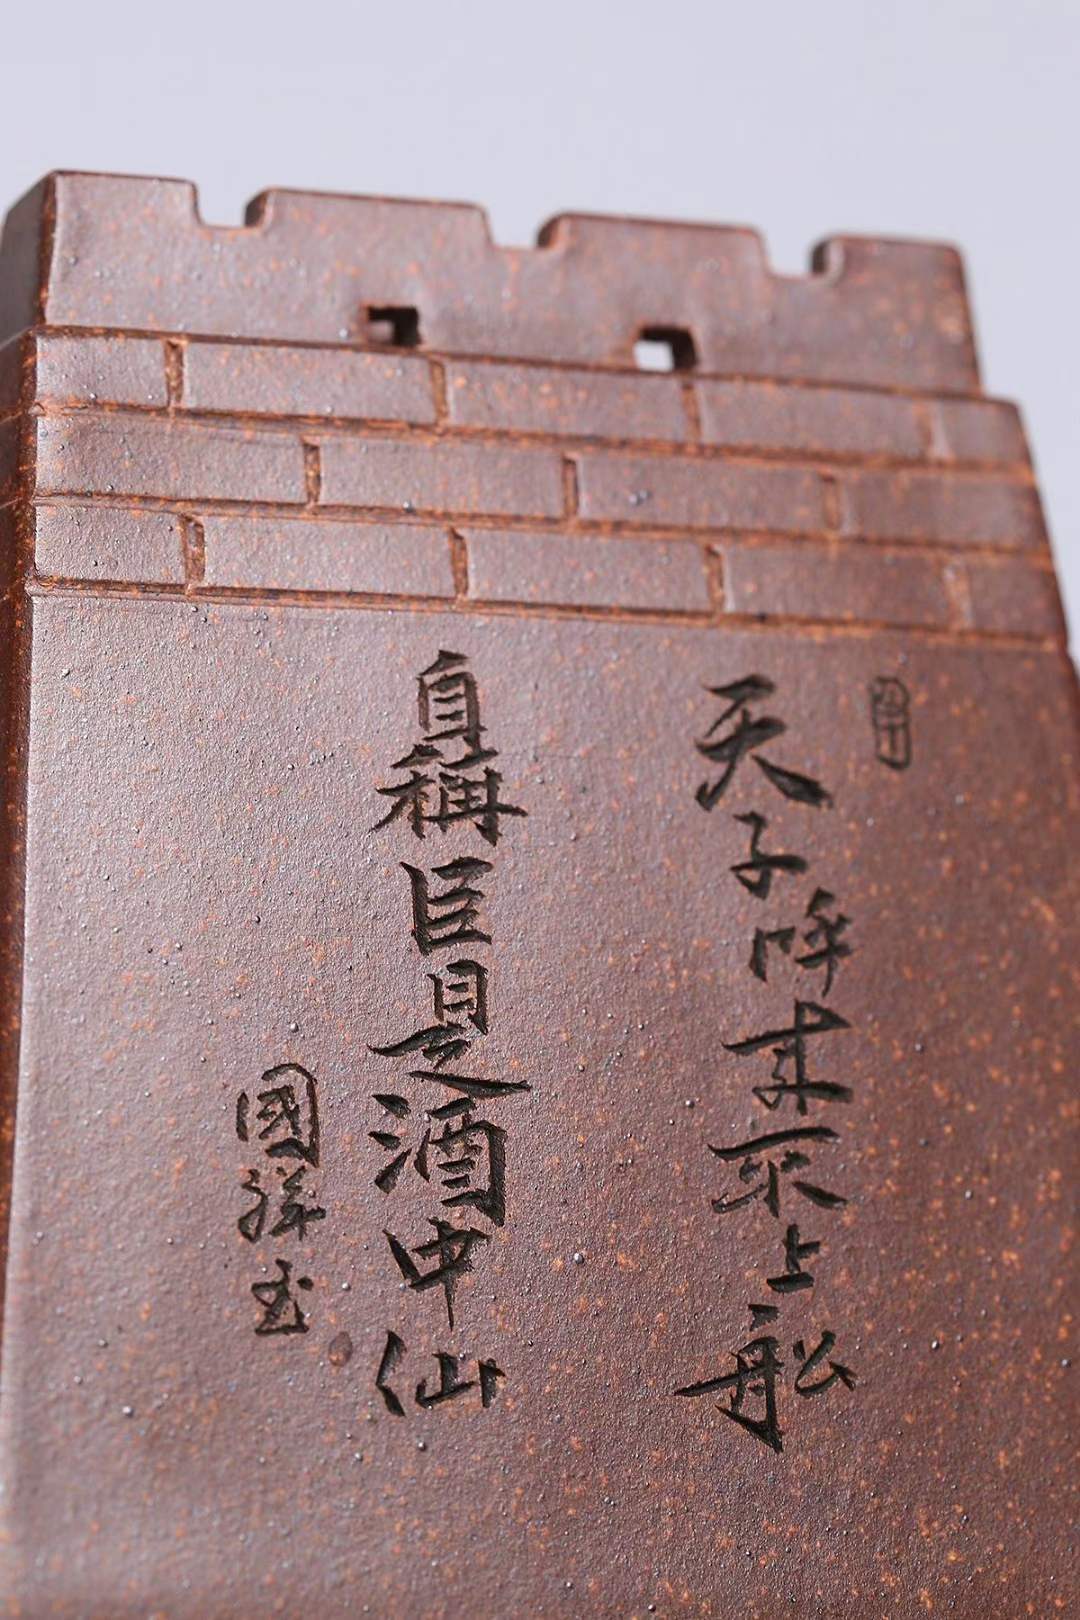 天子呼来不上船
自稱臣是酒中仙
國祥